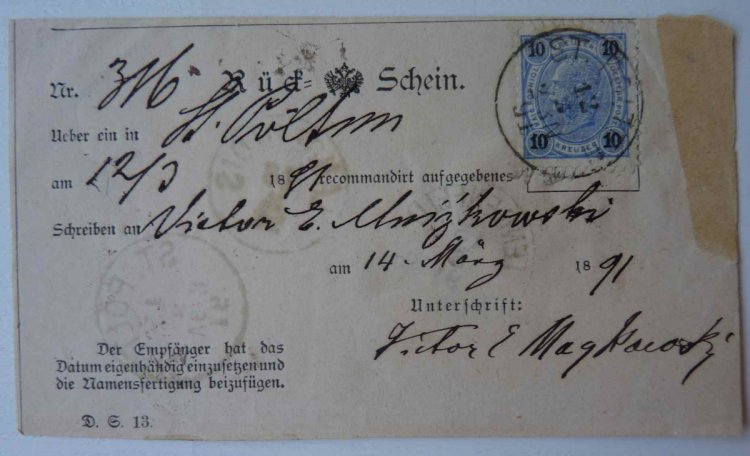 Nr. 316 Rück- Schein.
10 10
10 KREUZER 10
ST. P
12
3
Ueber ein in St. Pölten
am 12/3 1891 recommandirt aufgegebenes
Schreiben an Victor E.
am 14. März 1891
Unterschrift:
Victor E
Der Empfänger hat das
Datum eigenhändig einzusetzen und
die Namensfertigung beizufügen.
D. S. 13.